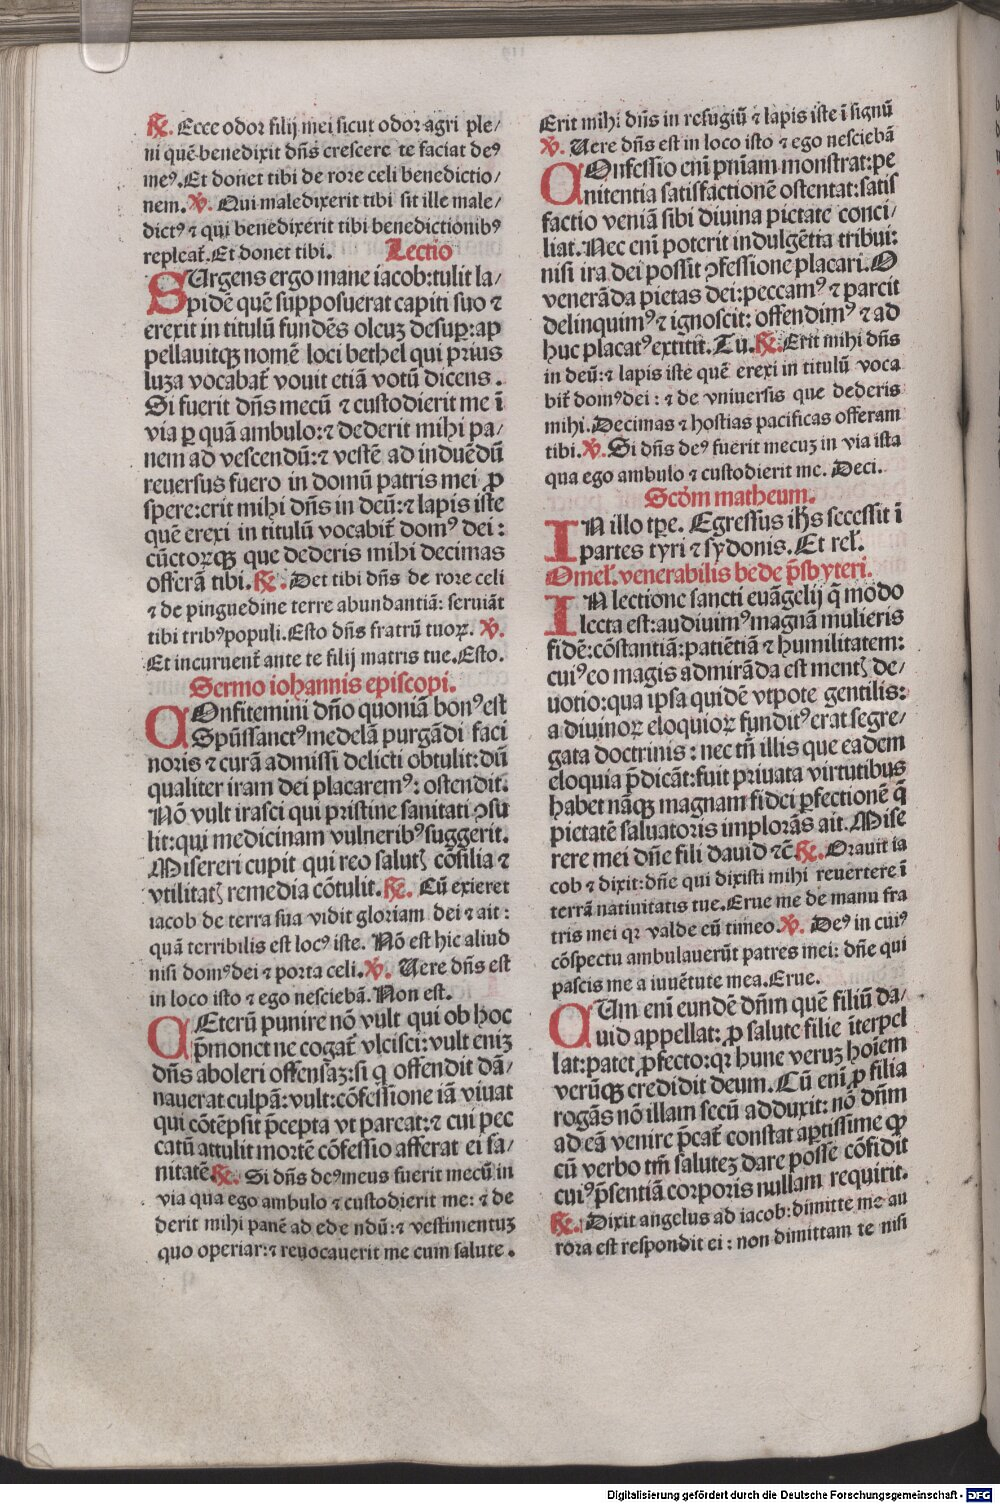 ℟. Ecce odor filij mei sicut odor agri ple/
ni quē benedixit dn̄s crescere te faciat deꝰ
meꝰ. Et donet tibi de rore celi benedictio/
nem. ℣. Qui maledixerit tibi sit ille male/
dictꝰ ⁊ qui benedixerit tibi benedictionibꝰ
repleat᷑. Et donet tibi. Lectio
SUrgens ergo mane iacob: tulit la/
pidē quē supposuerat capiti suo ⁊
erexit in titulū fundēs oleuʒ desup̲: ap
pellauitqʒ nomē loci bethel qui prius
luza vocabat᷑ vouit etiā votū dicens.
Si fuerit dn̄s mecū ⁊ custodierit me ī
via ꝑ quā ambulo: ⁊ dederit mihi pa/
nem ad vescendū: ⁊ vestē ad induēdū
reuersus fuero in domū patris mei ꝓ
spere: erit mihi dn̄s in deū: ⁊ lapis iste
quē erexi in titulū vocabit᷑ domꝰ dei:
cūctoꝝqʒ que dederis mihi decimas
offerā tibi. ℟. Det tibi dn̄s de rore celi
⁊ de pinguedine terre abundantiā: seruiāt
tibi tribꝰ populi. Esto dn̄s fratrū tuoꝝ. ℣.
Et incuruent᷑ ante te filij matris tue. Esto.
Sermo iohannis episcopi.
COnfitemini dn̄o quoniā bonꝰ est
Spūssanctꝰ medelā purgādi faci
noris ⁊ curā admissi delicti obtulit: dū
qualiter iram dei placaremꝰ: ostendit.
Nō vult irasci qui pristine sanitati ꝯsu
lit: qui medicinam vulneribꝰ suggerit.
Misereri cupit qui reo salutꝭ cōsilia ⁊
vtilitatꝭ remedia cōtulit. ℟. Cū exieret
iacob de terra sua vidit gloriam dei ⁊ ait:
quā terribilis est locꝰ iste. Nō est hic aliud
nisi domꝰ dei ⁊ porta celi. ℣. Uere dn̄s est
in loco isto ⁊ ego nesciebā. Non est.
CEterū punire nō vult qui ob hoc
p̄monet ne cogat᷑ vlcisci: vult eniʒ
dn̄s aboleri offensaʒ: si q̄ offendit dā/
nauerat culpā: vult: cōfessione iā viuat
qui cōtēpsit p̄cepta vt parcat: ⁊ cui pec
catū attulit mortē cōfessio afferat ei sa/
nitatē. ℟. Si dn̄s deꝰ meus fuerit mecū in
via qua ego ambulo ⁊ custodierit me: ⁊ de
derit mihi panē ad edendū: ⁊ vestimentuʒ
quo operiar: ⁊ reuocauerit me cum salute.
Erit mihi dn̄s in refugiū ⁊ lapis iste ī signū
℣. Uere dn̄s est in loco isto ⁊ ego nesciebā
COnfessio enī pn̄iam monstrat: pe
nitentia satisfactionē ostentat: satis
factio veniā sibi diuina pietate conci/
liat. Nec enī poterit indulgētia tribui:
nisi ira dei possit ꝯfessione placari. O
venerāda pietas dei: peccamꝰ ⁊ parcit
delinquimꝰ ⁊ ignoscit: offendimꝰ ⁊ ad
huc placatꝰ extitit. Tu. ℟. Erit mihi dn̄s
in deū: ⁊ lapis iste quē erexi in titulū voca
bit᷑ domꝰ dei: ⁊ de vniuersis que dederis
mihi. Decimas ⁊ hostias pacificas offeram
tibi. ℣. Si dn̄s deꝰ fuerit mecuʒ in via ista
qua ego ambulo ⁊ custodierit me. Deci.
Scd̄m matheum.
IN illo tp̄e. Egressus ih̄s secessit ī
partes tyri ⁊ sydonis. Et rel̄.
Omel̄. venerabilis bede p̄sbyteri.
IN lectione sancti euāgelij q̄ modo
lecta est: audiuimꝰ magnā mulieris
fidē: cōstantiā: patiētiā ⁊ humilitatem:
cuiꝰ eo magis admirāda est mentꝭ de/
uotio: qua ipsa quidē vtpote gentilis:
a diuinoꝝ eloquioꝝ funditꝰ erat segre/
gata doctrinis: nec tn̄ illis que eadem
eloquia p̄dicāt: fuit priuata virtutibus
habet nāqʒ magnam fidei ꝑfectionē q̄
pietatē saluatoris implorās ait. Mise
rere mei dn̄e fili dauid ⁊c̄. ℟. Orauit ia
cob ⁊ dixit: dn̄e qui dixisti mihi reuertere ī
terrā natiuitatis tue. Erue me de manu fra
tris mei qꝛ valde eū timeo. ℣. Deꝰ in cuiꝰ
cōspectu ambulauerūt patres mei: dn̄e qui
pascis me a iuuētute mea. Erue.
CUm enī eundē dn̄m quē filiū da/
uid appellat: ꝓ salute filie īterpel
lat: patet ꝓfecto: qꝛ hunc veruʒ hoīem
verūqʒ credidit deum. Cū enī ꝓ filia
rogās nō illam secū adduxit: nō dn̄m
ad eā venire p̄cat᷑ constat aꝑtissime ꝙ
cū verbo tm̄ saluteʒ dare posse cōfidit
cuiꝰ p̄sentiā corporis nullam requirit.
℟. Dixit angelus ad iacob: dimitte me au
rora est respondit ei: non dimittam te nisi
Digitalisierung gefördert durch die Deutsche Forschungsgemeinschaft - DFG